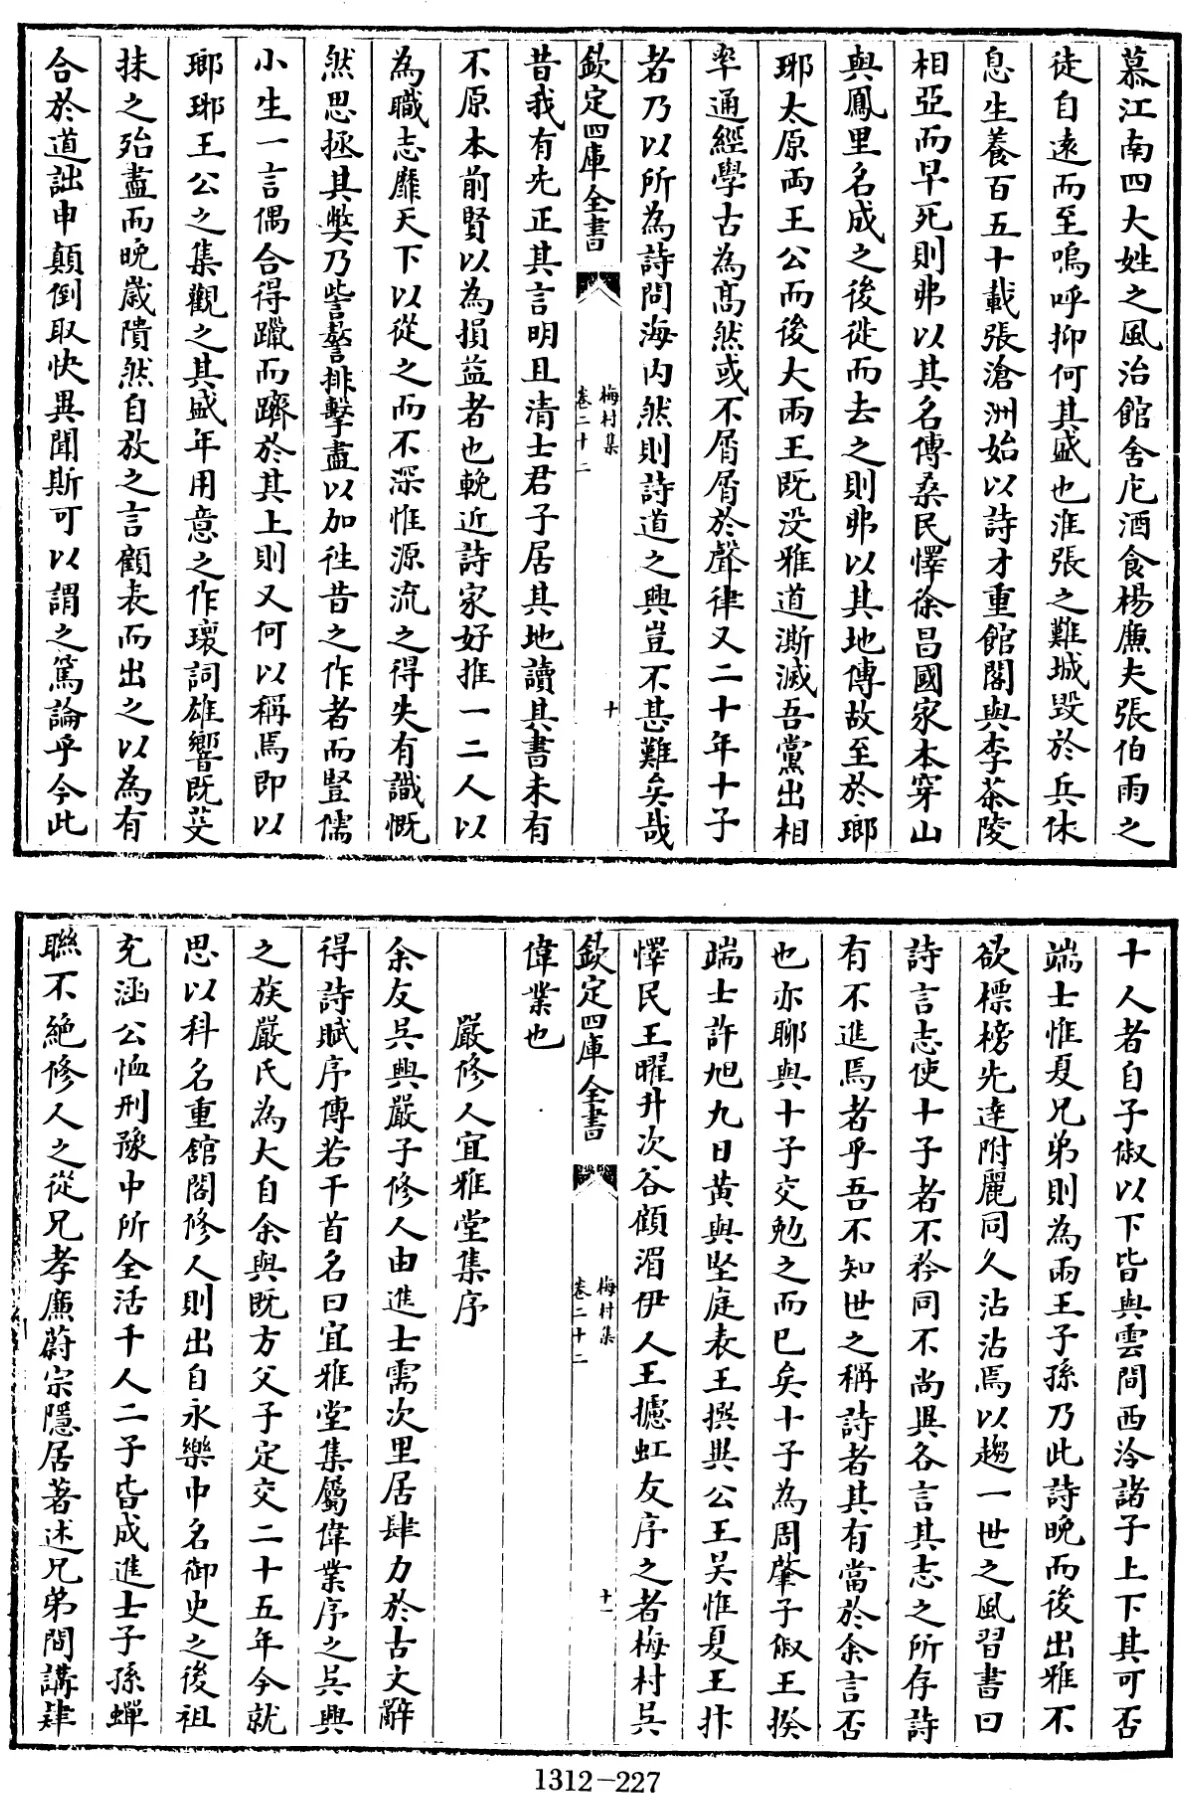 慕江南四大姓之風治館舍庀酒食楊廉夫張伯雨之
徒自遠而至嗚呼抑何其盛也淮張之難城毀於兵休
息生養百五十載張滄洲始以詩才重館閣與李茶陵
相亞而早死則弗以其名傳桑民懌徐昌國家本穿山
與鳳里名成之後徙而去之則弗以其地傳故至於瑯
琊太原兩王公而後大兩王既没雅道澌滅吾黨出相
率通經學古為髙然或不屑屑於聲律又二十年十子
者乃以所為詩問海内然則詩道之興豈不甚難矣哉
欽定四庫全書
梅村集
卷二十二
十
昔我有先正其言明且清士君子居其地讀其書未有
不原本前賢以為損益者也輓近詩家好推一二人以
為職志靡天下以從之而不深惟源流之得失有識慨
然思拯其弊乃訾謷排擊盡以加徃昔之作者而豎儒
小生一言偶合得躐而躋於其上則又何以稱焉即以
瑯琊王公之集觀之其盛年用意之作瓌詞雄響既芟
抹之殆盡而晚嵗隤然自放之言顧表而出之以為有
合於道詘申顛倒取快異聞斯可以謂之篤論乎今此
十人者自子俶以下皆與雲間西泠諸子上下其可否
端士惟夏兄弟則為兩王子孫乃此詩晚而後出雅不
欲標榜先達附麗同久沾沾焉以趨一世之風習書曰
詩言志使十子者不矜同不尚異各言其志之所存詩
有不進焉者乎吾不知世之稱詩者其有當於余言否
也亦聊與十子交勉之而已矣十子為周肇子俶王揆
端士許旭九日黄與堅庭表王撰異公王昊惟夏王抃
懌民王曜升次谷顧湄伊人王攄虹友序之者梅村吳
欽定四庫全書
梅村集
卷二十二
十一
偉業也
嚴修人宜雅堂集序
余友吳興嚴子修人由進士需次里居肆力於古文辭
得詩賦序傳若干首名曰宜雅堂集屬偉業序之吳興
之族嚴氏為大自余與既方父子定交二十五年今就
思以科名重舘閣修人則出自永樂中名御史之後祖
充涵公恤刑豫中所全活千人二子皆成進士子孫蟬
聯不絶修人之從兄孝廉蔚宗隱居著述兄弟間講肄
1312-227